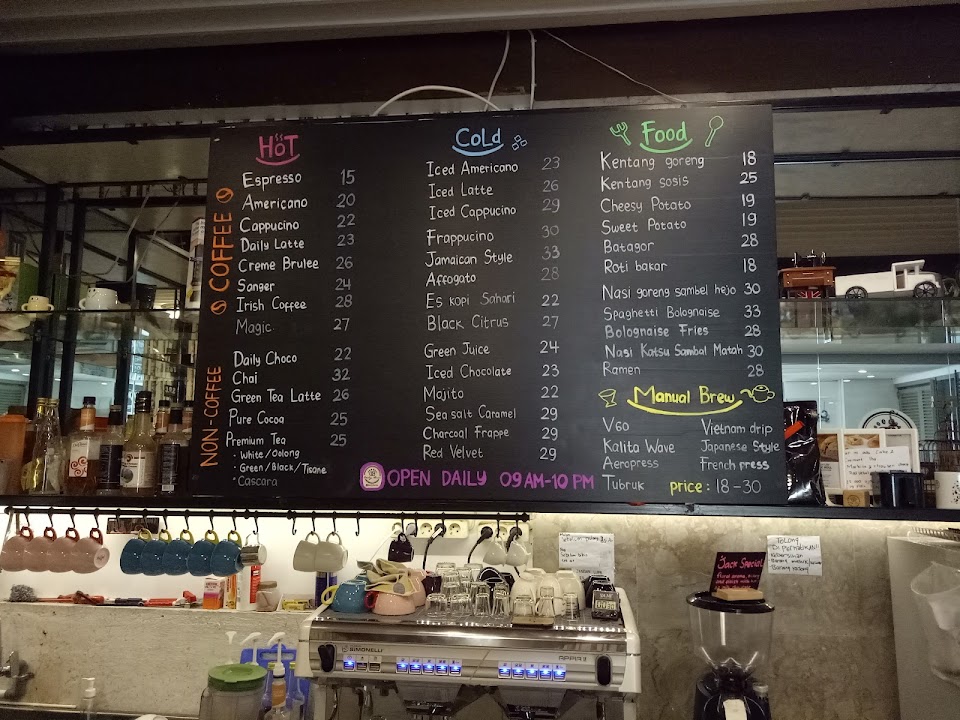 HOT
COFFEE
Espresso 15
Americano 20
Cappucino 22
Daily Latte 23
Creme Brulee 26
Sanger 24
Irish Coffee 28
Magic 27
NON-COFFEE
Daily Choco 22
Chai 32
Green Tea Latte 26
Pure Cocoa 25
Premium Tea 25
• White/Oolong
• Green/Black/Tisane
• Cascara
Cold
Iced Americano 23
Iced Latte 26
Iced Cappucino 29
Frappucino 30
Jamaican Style 33
Affogato 28
Es kopi Sahari 22
Black Citrus 27
Green Juice 24
Iced Chocolate 23
Mojito 22
Sea salt Caramel 29
Charcoal Frappe 29
Red Velvet 29
Food
Kentang goreng 18
Kentang sosis 25
Cheesy Potato 19
Sweet Potato 19
Batagor 28
Roti bakar 18
Nasi goreng sambel hejo 30
Spaghetti Bolognaise 33
Bolognaise Fries 28
Nasi Katsu Sambal Matah 30
Ramen 28
Manual Brew
V60 Vietnam drip
Kalita Wave Japanese Style
Aeropress French press
Tubruk price: 18-30
OPEN DAILY 09AM-10PM
Jack Special
TOLONG
SIMONELLI
APPIA